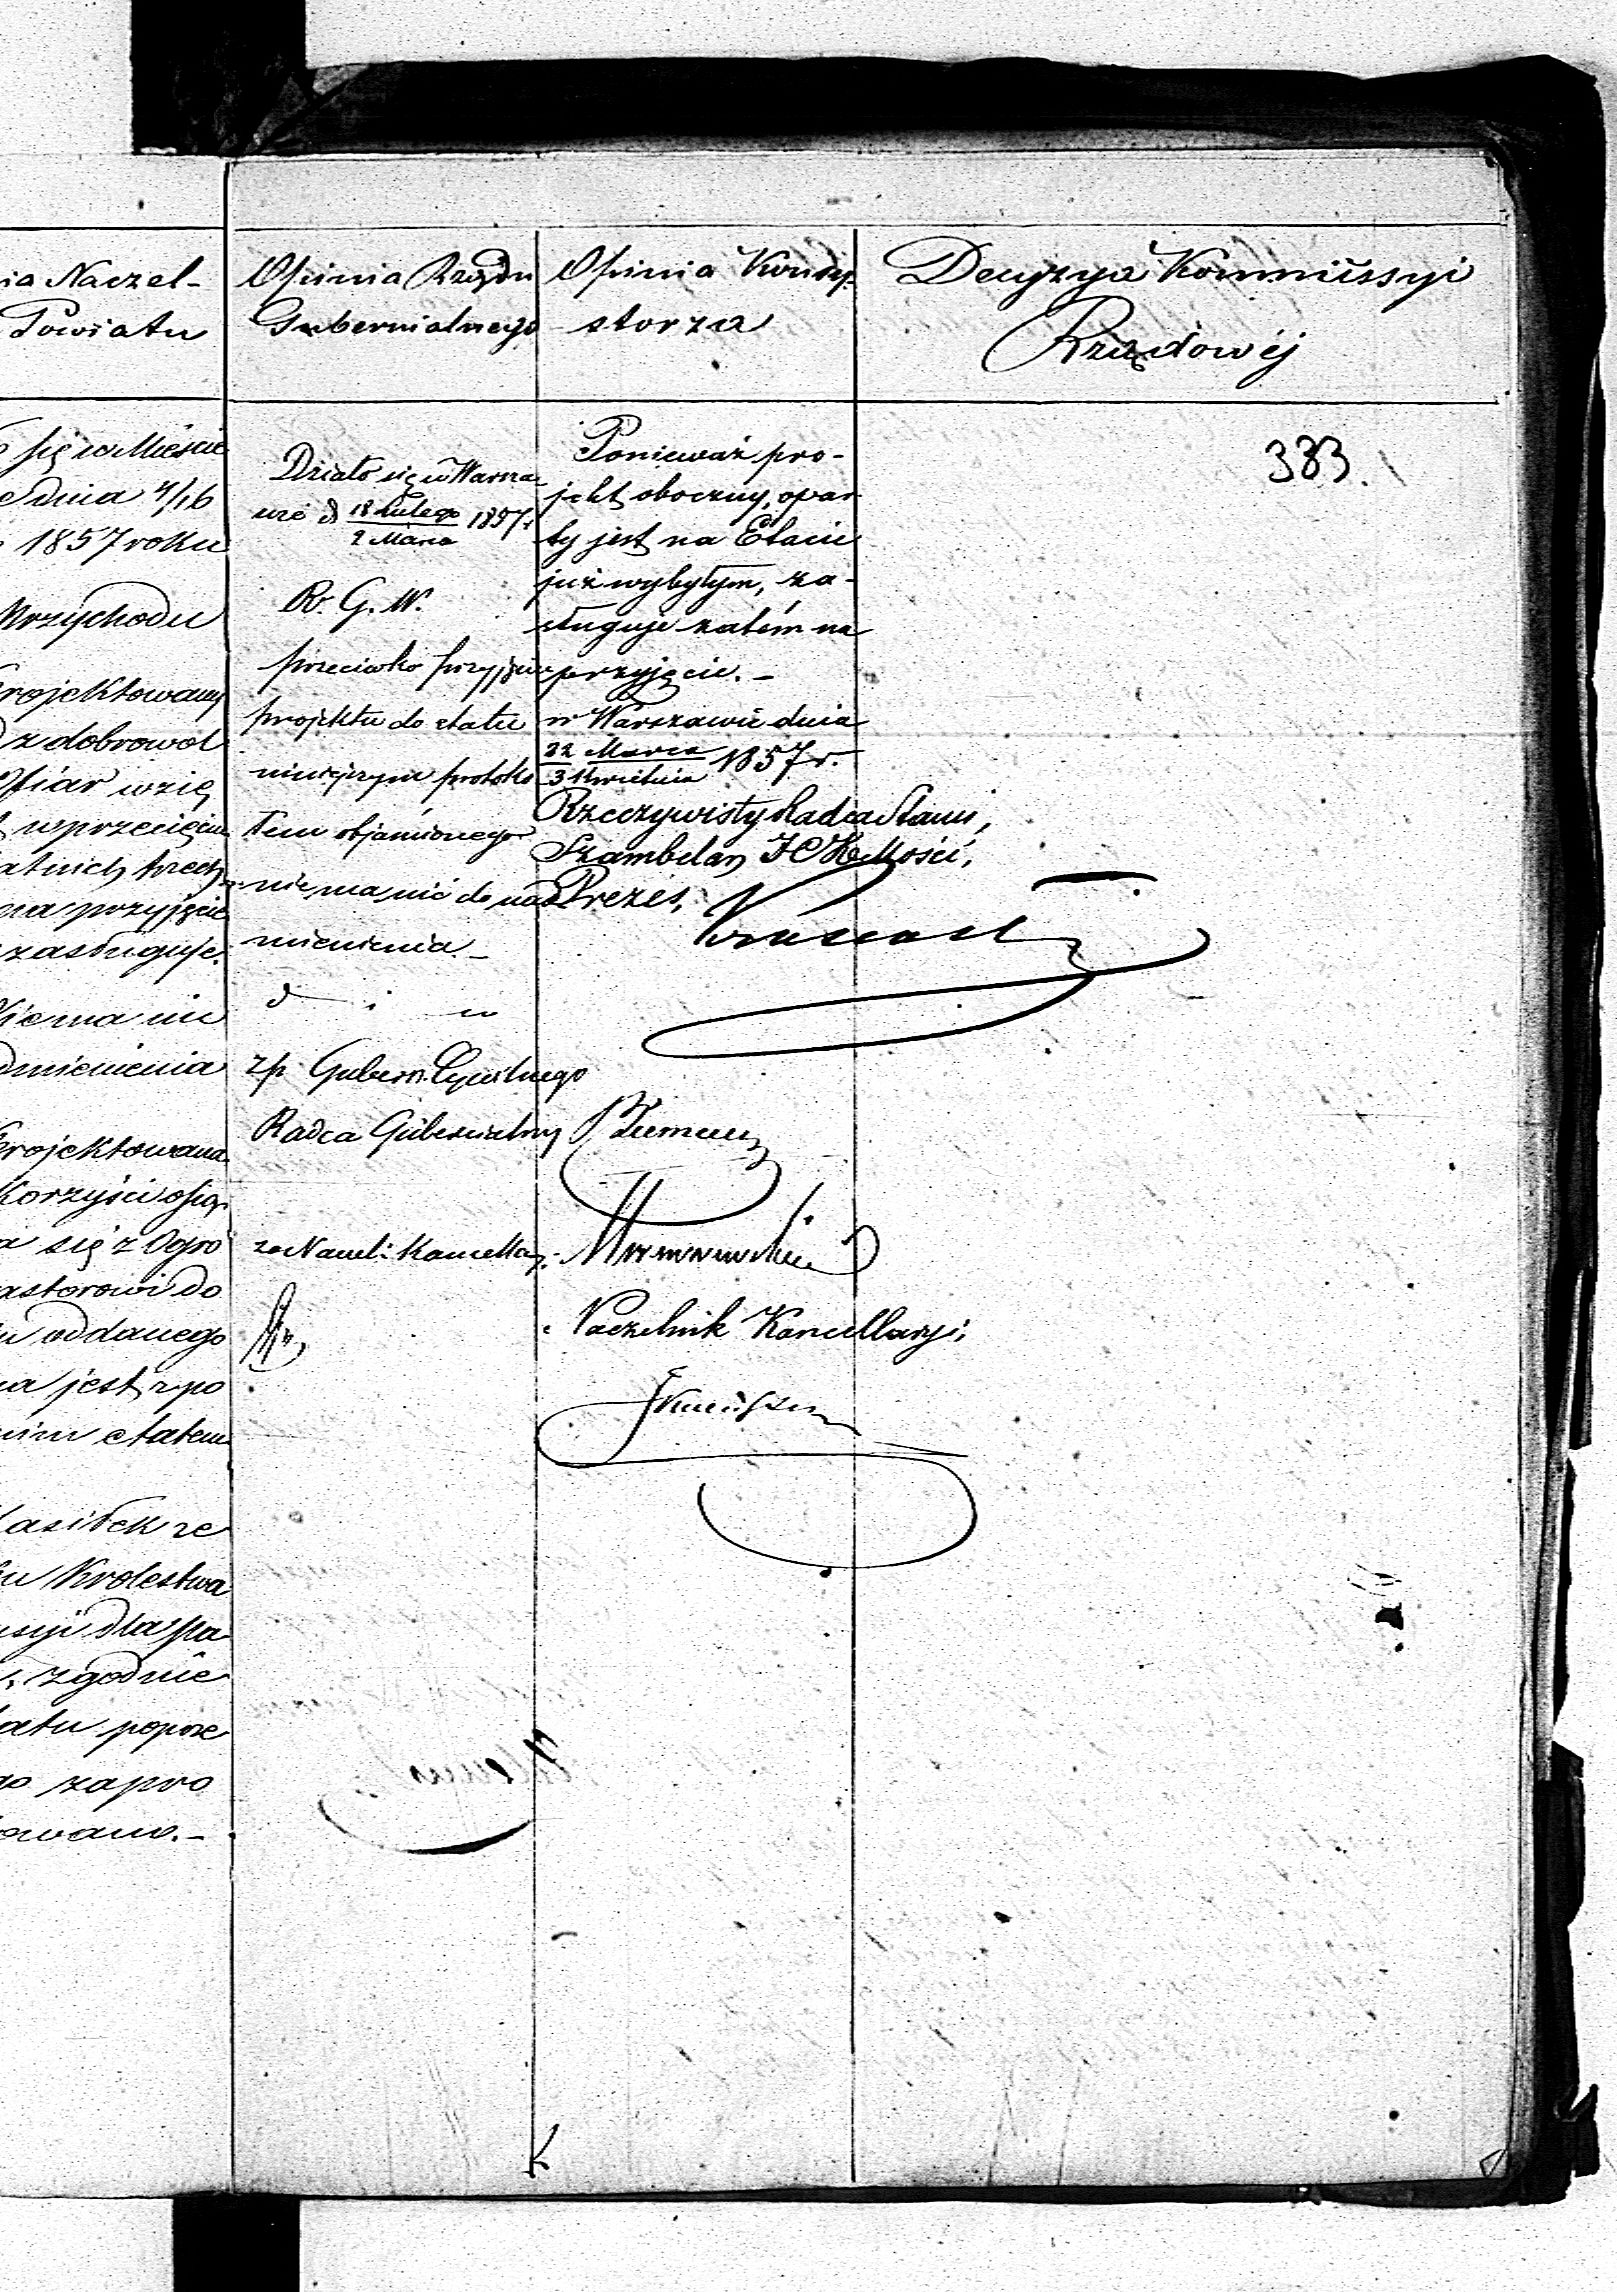 ia Naczel-
Powiatu
się w Mieście
dnia 4/16
1857 roku
Przychodu
rojektowany
z dobrowol
Ofiar wzię
w przecięciu
atnich trzech
na przyjęcie
zasługuje.
Nie ma nic
dmienienia
Projektowana
Korzyści osią
a się z Ogro
astorowi do
u oddanego
na jest z po
nim etatem
Zasiłek ze
bu Krolestwa
nsyi dla Pa
zgodnie
tatu poprze
go zapro
owano.-
Opinia Rządu
Gubernialnego
Działo się w Warsza
wie d 18 Lutego 1857 r
2 Marca
R. G. W.
przeciwko przyjęciu
projektu do etatu
niniejszym protoko
łem objaśnionego
nie ma nic do nad
mienienia.-
zp Gubern. Cywilnego
Radca Gubernialny
za Naczel: Kancellar.
Opinia Konsy-
storza
Ponieważ pro-
jekt oboczny, opar
ty jest na Etacie
już wybytym, za-
sługuje zatém na
przyjęcie.-
w Warszawie dnia
22 Marca 1857 r.
3 Kwietnia
Rzeczywisty Radca Stanu,
Szambelan JCK Mości,
Prezes,
Naczelnik Kancellaryi,
Decyzya Kommissyi
Rządowéj
383.